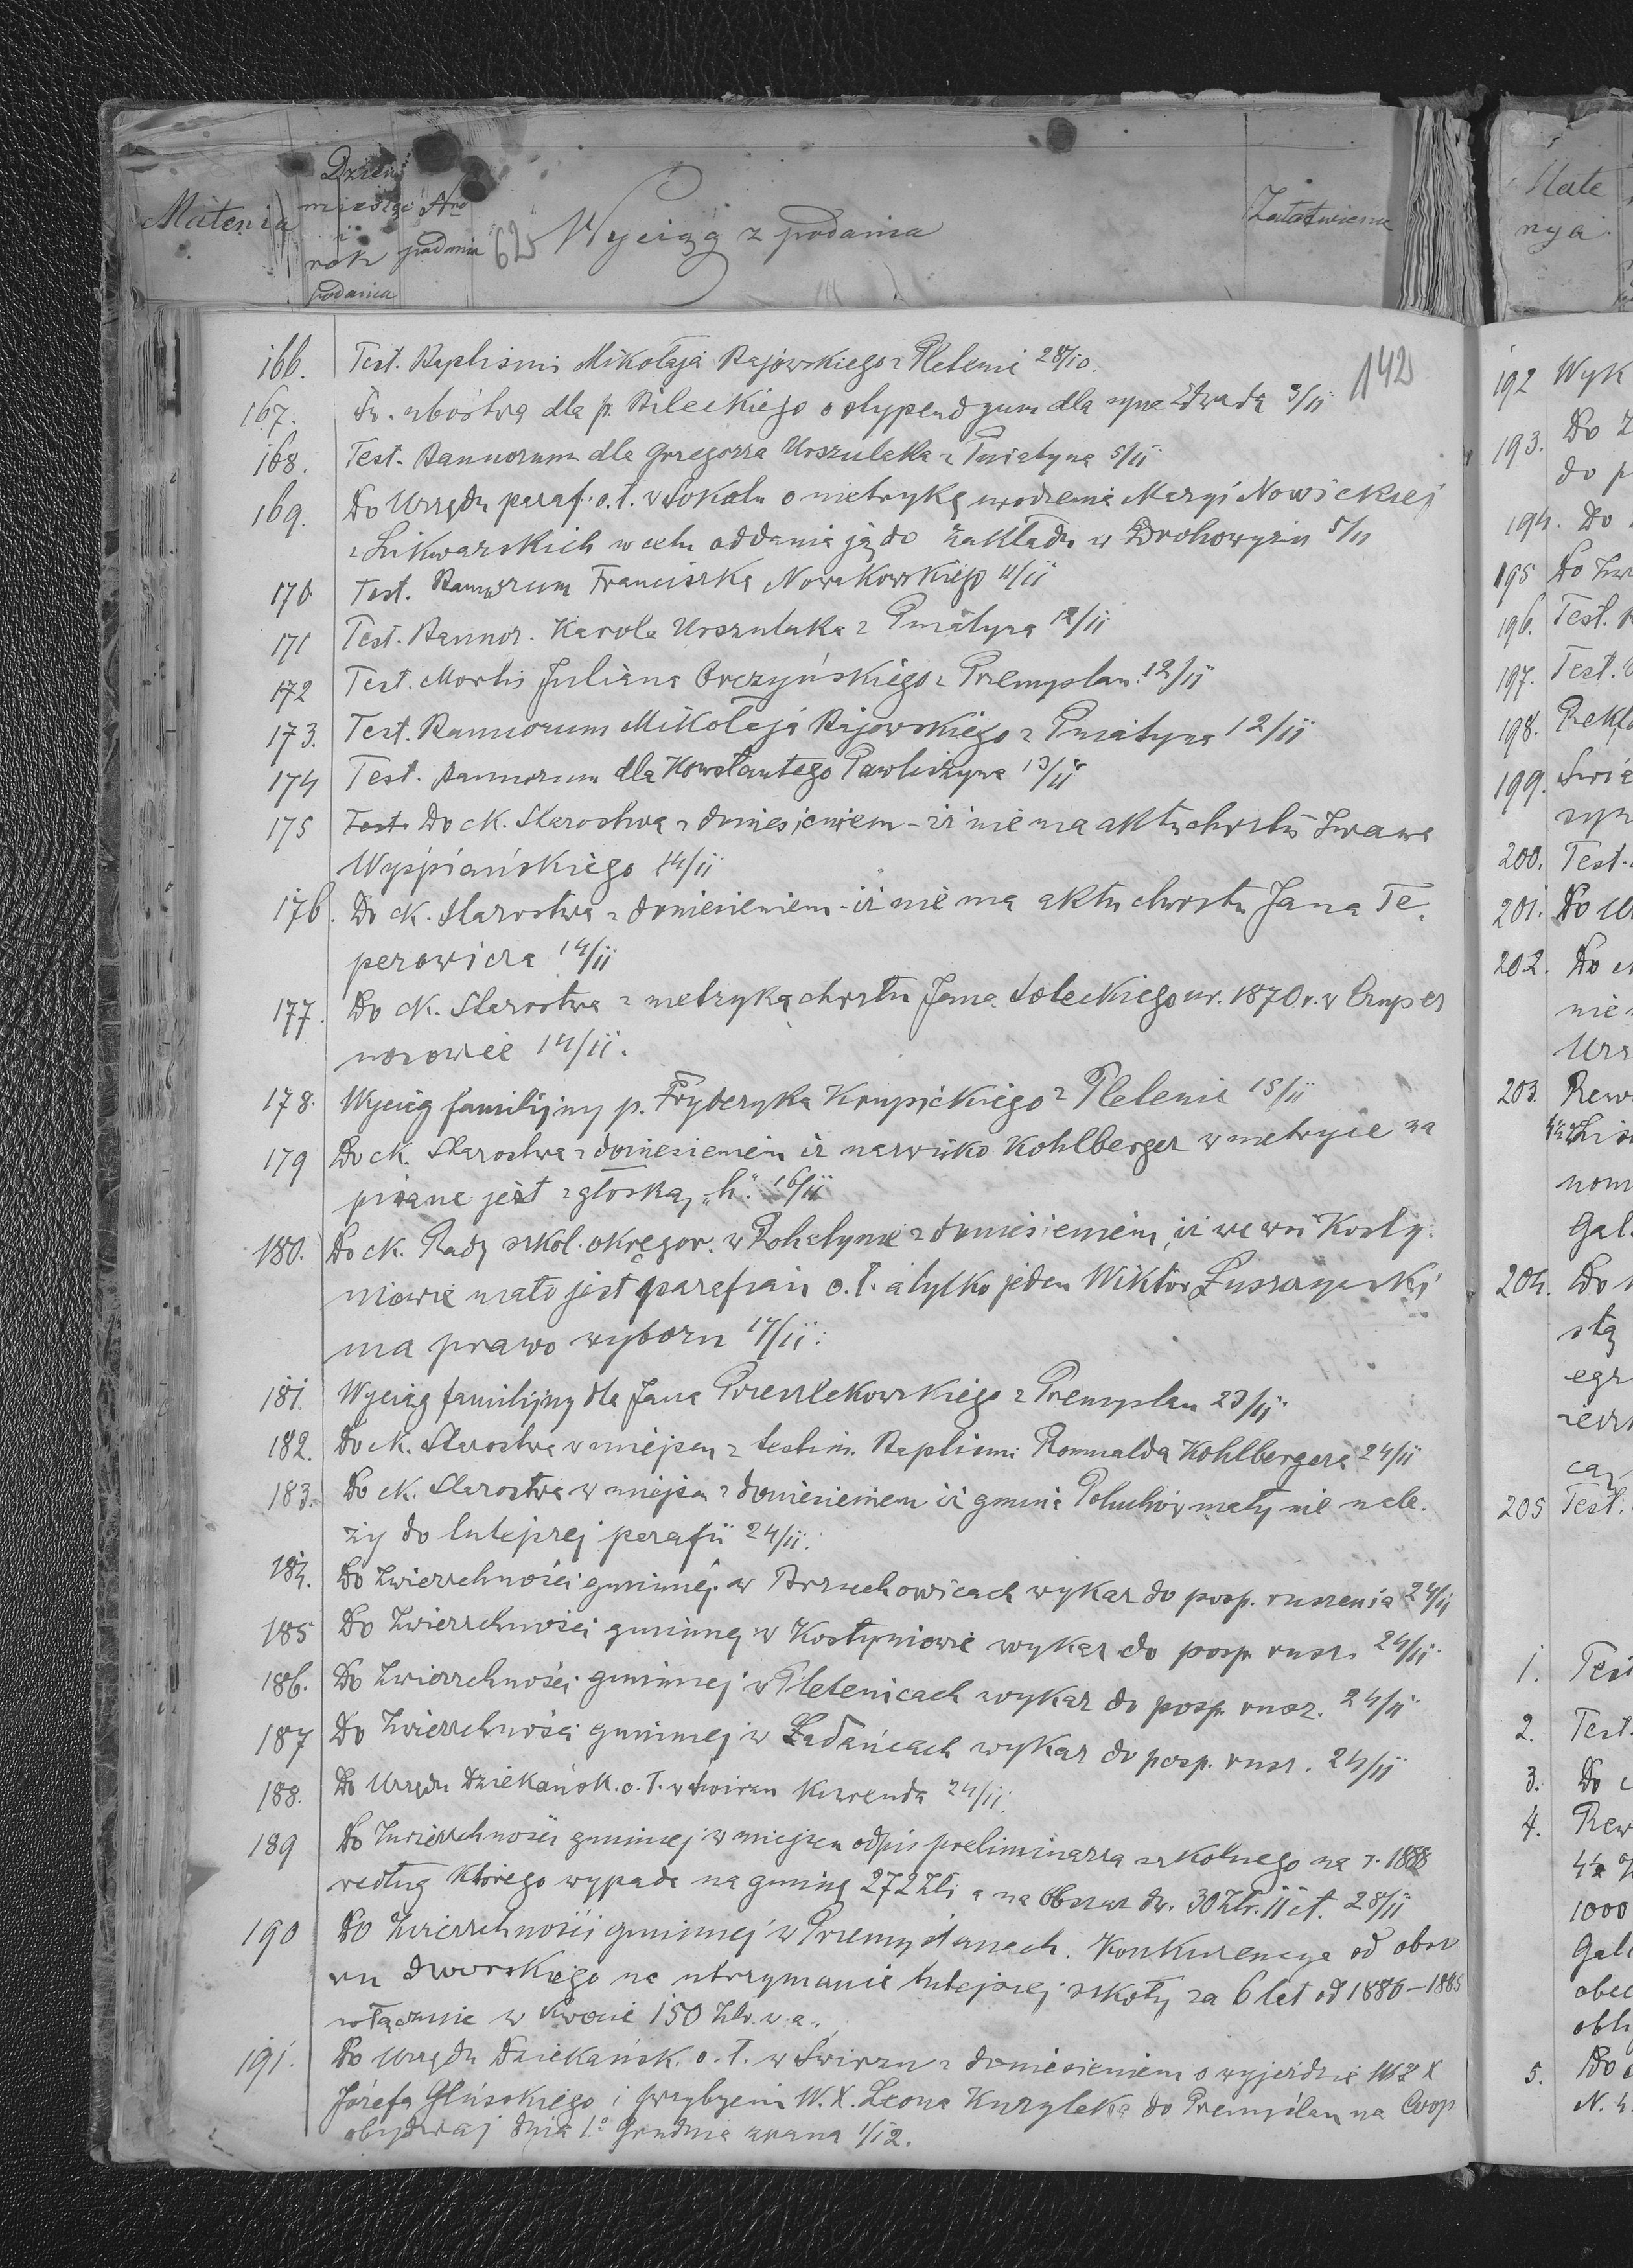 Materia
Dzień
miesiąc
i
rok
podania
Nro
podania
62
Wyciąg z podania
Załatwienie
142
166. Test. Baptismi Mikołaja Bajowskiego z Pleteni 28/10.
167. Św. ubóstwa dla p. Bileckiego o stypendyum dla syna Edwarda 3/11
168. Test. Bannorum dla Grzegorza Urszulaka z Pniatyna 5/11
169. Do Urzędu paraf. o. ł. w Sokalu o metrykę urodzenia Maryi Nowickiej
z Sikwarskich w celu oddania ją do zakładu w Drohowyżu 5/11
170 Test. Bannorum Franciszka Nowakowskiego 11/11
171 Test. Bannor. Karola Urszulaka z Pniatyna 12/11
172 Test. Mortis Juliana Orczyńskiego z Przemyślan. 12/11
173. Test. Bannorum Mikołaja Bajowskiego z Pniatyna 12/11
174 Test. Bannorum dla Konstantego Pawliszyna 13/11
175 Test. Do ck. Starostwa z doniesieniem - iż nie ma aktu chrztu Iwana
Wyśpiańskiego 14/11
176. Do ck. Starostwa z doniesieniem - iż nie ma aktu chrztu Jana Te-
perowicza 14/11
177. Do ck. Starostwa z metryką chrztu Jana Soleckiego ur. 1870 r. w Czuper
nosowie 14/11.
178. Wyciąg familijny p. Fryderyka Krupickiego z Pletenic 15/11
179 Do ck. Starostwa z doniesieniem iż nazwisko Kohlberger w metryce na
pisane jest z głoską „h". 16/11
180. Do ck. Rady szkol. okręgow. w Rohatynie z doniesieniem, iż we wsi Kosty-
niowie mało jest parafian o. ł. a tylko jeden Wiktor
ma prawo wyboru 17/11.
181. Wyciąg familijny dla Jana z Przemyślan 23/11.
182. Do ck. Starostwa w miejscu z testim. Baptismi Romualda Kohlbergera 24/11
183. Do ck. Starostwa w miejscu z doniesieniem iż gmina Poluchów mały nie nale-
ży do tutejszej parafii 24/11.
184. Do Zwierzchności gminnej w Brzuchowicach wykaz do posp. ruszenia 24/11
185 Do Zwierzchności gminnej w Kostyniowie wykaz do posp. rusz. 24/11.
186. Do Zwierzchności gminnej w Pletenicach wykaz do posp. rusz. 24/11
187 Do Zwierzchności gminnej w Ładańcach wykaz do posp. rusz. 24/11
188. Do Urzędu Dziekańsk. o. ł. w Świrzu Kurenda 24/11.
189 Do Zwierzchności gminnej w miejscu odpis preliminarza szkolnego na r. 1888
według którego wypada na gminę 272 Złr a na Obszar dw. 30 Złr. 11 ct. 28/11
190 Do Zwierzchności gminnej w Przemyślanach. Konkurencya od obsza
ru dworskiego na utrzymanie tutejszej szkoły za 6 let od 1880-1885
włącznie w kwocie 150 Złr. w. a.
191. Do Urzędu Dziekańsk. o. ł. w Świrzu z doniesieniem o wyjeździe W X
Józefa Glińskiego i przybyciu W. X. Leona do Przemyślan na Coop
obydwaj dnia 1.º Grudnia z rana 1/12.
Mate
rya
192 Wyk
193. Do Z
do p
194. Do
195 Do Zw
196. Test. B
197. Test.
198. Rekla
199. Świa
syn
200. Test.
201. Do U
202. Do c
nie
Urz
203. Rew
4½ Lis
nom
Gal.
204. Do
stą
egz
205 Test.
1. Test
2. Test.
3. Do c
4. Rew
1000
Gali
obec
obli
5. Do
N. 4.